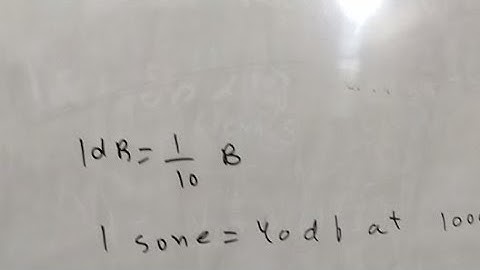 1dB = 1/10 B
1 sone = 40db at 100